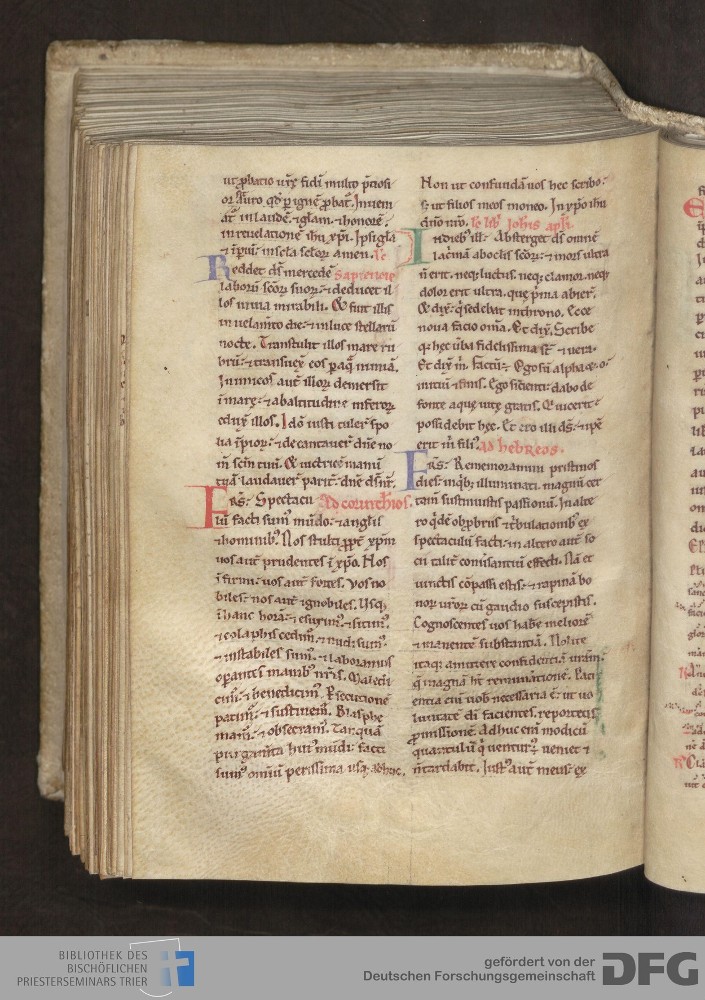 ut ꝓbatio ur̄e fidei multo p̄ciosi
or auro qd̓ p̲ ignē ꝓbat᷑. Inueni
at᷑ in laudē. ⁊ glam̄. ⁊ honorē.
in reuelatione ihu xp̄i. Ipsi gl̄a
⁊ īperiū. in sc̄la sc̄lor̄ amen. Sc̄
Reddet ds̄ mercedē Sapientie
laborū sc̄or̄ suor̄. ⁊ deducet il
los in uia mirabili. Et fuit illis
in uelam̄to die. ⁊ in luce stellarū
nocte. Transtulit illos mare ru
brū. ⁊ transuex̄ eos p̲ aquā nimiā.
Inimicos aut̄ illor̄ demersit
ī mare. ⁊ ab altitudine inferor̄
eduxit illos. Ido iusti tuler̄ spo
lia īpior̄. ⁊ decantauer̄ dn̄e no
m̄ sc̄m tuū. Et uictricē manū
tuā laudauer̄ parit̄. dn̄e ds̄ nr̄.
Frs̄. Spectacu Ad corinthios.
lū facti sum᷒ mūdo. ⁊ angl̄is
⁊ hominib᷒. Nos stulti ꝓpt̄ xp̄m
uos aut̄ prudentes ī xp̄o. Nos
ī firmi. uos aut̄ fortes. Vos no
biles. nos aut̄ ignobiles. Usq;
ī hanc horā. ⁊ esurim᷒. ⁊ sitim᷒.
⁊ colaphis cedim᷒. ⁊ nudi sum᷒.
⁊ instabiles sum᷒. ⁊ laboramus
oꝑantes manib᷒ nr̄is. Maledi
cim᷒. ⁊ benedicim᷒. Persecutionē
patim᷒. ⁊ sustinem᷒. Blasphe
mam᷒. ⁊ obsecram᷒. Tanquā
purgam̄ta hui᷒ mūdi. facti
sum᷒ omniū peripsima usq; adhuc.
Non ut confundā uos hec scribo.
s; ut filios meos moneo. In xp̄o ihu
dn̄o nr̄o. Sc̄ lib̄ Ioh̄is apl̄i.
In dieb᷒ ill. Absterget ds̄ omnē
lac̄mā ab oclis sc̄or̄. ⁊ mors ultra
ñ erit. neq; luctus. neq; clamor. neq;
dolor erit ultra. que p̄ma abier̄.
Et dix̄. q̇ sedebat in throno. Ecce
noua facio om̄a. Et dix̄. Scribe
q; hec ūba fidelissima st̄ ⁊ uera.
Et dix̄ m̄. Factū ē. Ego sū alpha ⁊ o
initiū ⁊ finis. Ego sicienti dabo de
fonte aque uite gratis. Q̇ uicerit
possidebit hec. Et ero illi ds̄. ⁊ ip̄e
erit m̄ fili᷒. Ad hebreos.
Frs̄. Rememoramini pristinos
dies. in qb; illuminati. magnū cer
tam̄ sustinuistis passionū. In alte
ro q̇dē obp̄briis ⁊ tⁱbulationib᷒
spectaculū facti. in altero aut̄ so
cii talit̄ conūsantiū effecti. Nā et
uinctis cōpassi estis. ⁊ rapinā bo
nor̄ uror̄ cū gaudio suscepistis.
Cognoscentes uos habe meliorē
⁊ manentē substantiā. Nolite
itaq; amittere confidentiā uram̄.
q̄ magnā h̄t remunationē. Paci
entia eni uob̄ necessaria ē. ut uo
luntatē di facientes. reportetis
ꝓmissionē. Adhuc eni modicū
quantulū q̇ uentur᷒ ē ueniet ⁊
ñ tardabit. Iust᷒ aut̄ meus. ex
BIBLIOTHEK DES
BISCHÖFLICHEN
PRIESTERSEMINARS TRIER
gefördert von der
Deutschen Forschungsgemeinschaft
DFG